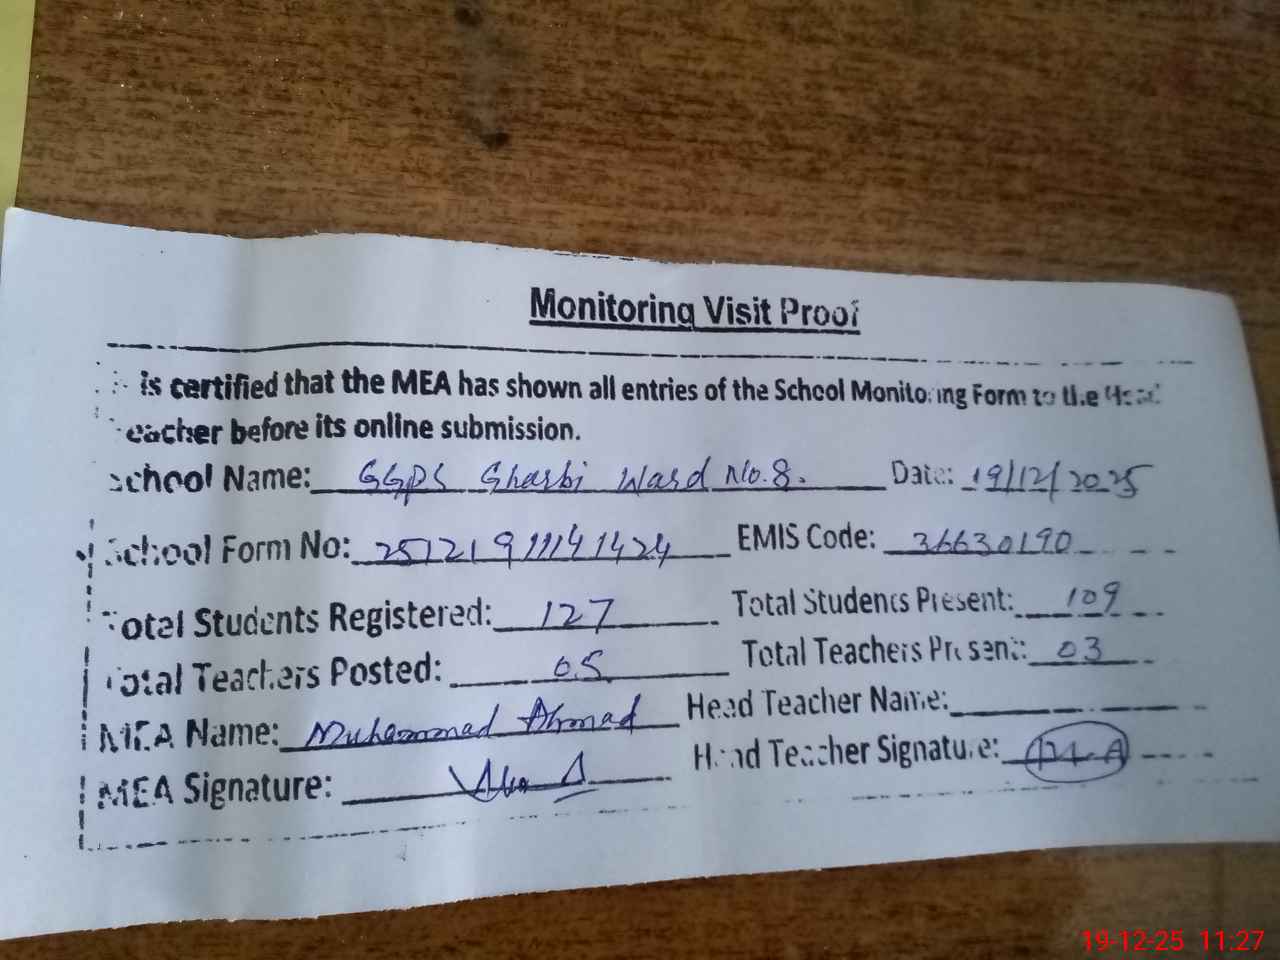 Monitoring Visit Proof
is certified that the MEA has shown all entries of the School Monitoring Form to the Head
Teacher before its online submission.
School Name: GGPS Gharbi Ward No.8. Date: 19/12/2025
School Form No: 25121911141424 EMIS Code: 36630190
Total Students Registered: 127 Total Students Present: 109
Total Teachers Posted: 05 Total Teachers Present: 03
MEA Name: Muhammad Ahmad Head Teacher Name:
MEA Signature: Head Teacher Signature:
19-12-25 11:27